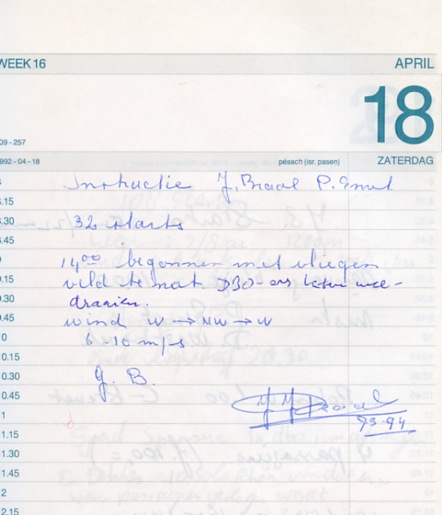 WEEK 16 APRIL
18
09 - 257
1992 - 04 - 18 pésach (isr. pasen) ZATERDAG
.15
.30
.45
0.15
0.30
0.45
1
1.15
1.30
1.45
2
2.15
Instructie J. Braal P. Smit
32 starts
14,00 begonnen met vliegen
veld te nat D30-ers laten
draaien.
wind W → NW → W
6 - 10 m/s
G. B.
93-94